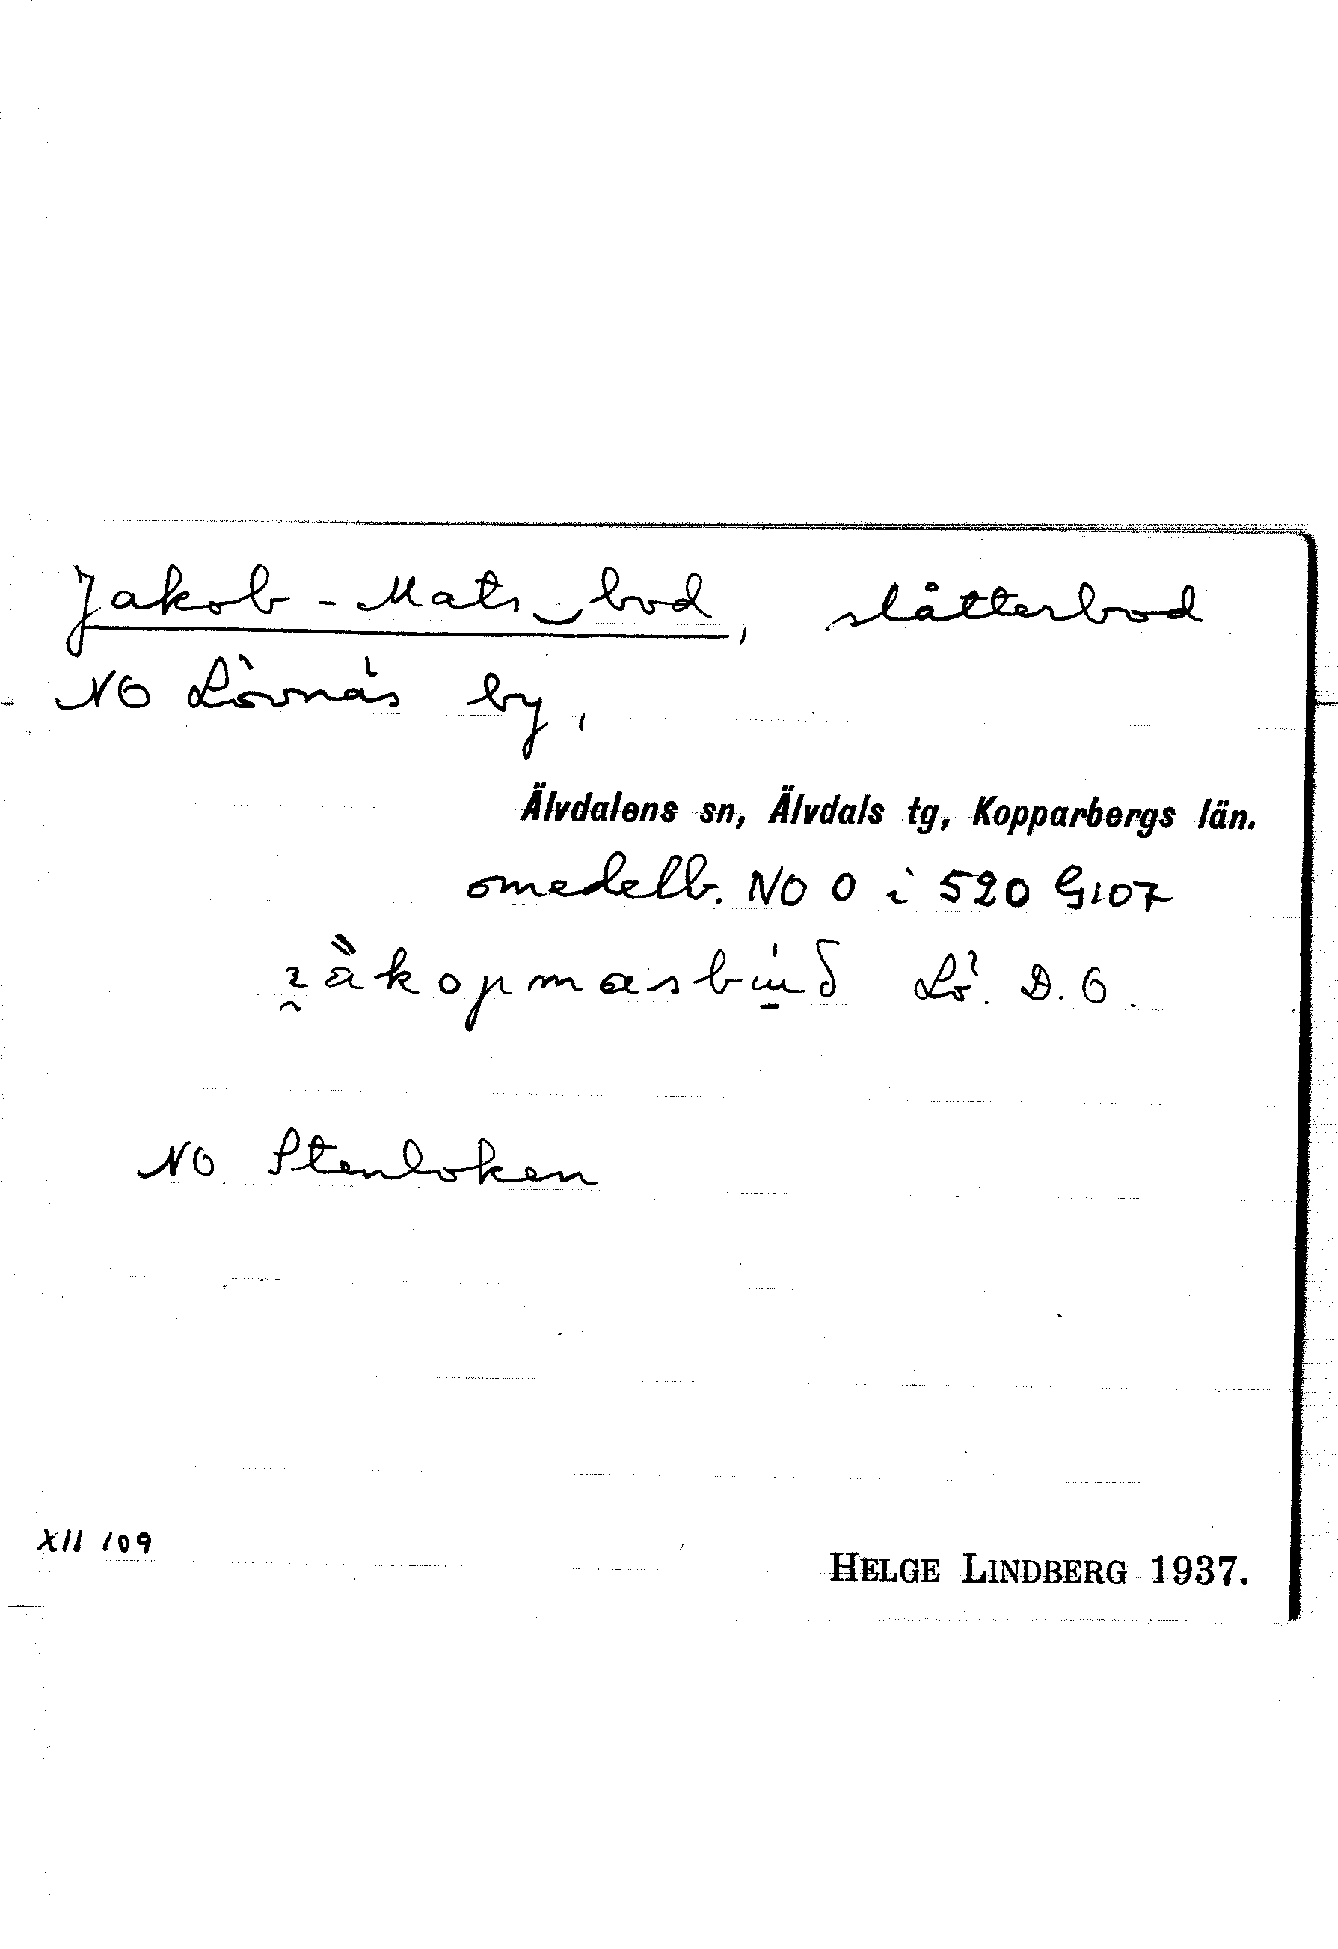 Jakob-Mats‿bod, slåtterbod
NO Lövnäs by,
Älvdalens sn, Älvdals tg, Kopparbergs län.
omedelb. NO 0 i 520 G107
Lö. D. G.
NO Stenloken
XII 109
HELGE LINDBERG 1937.